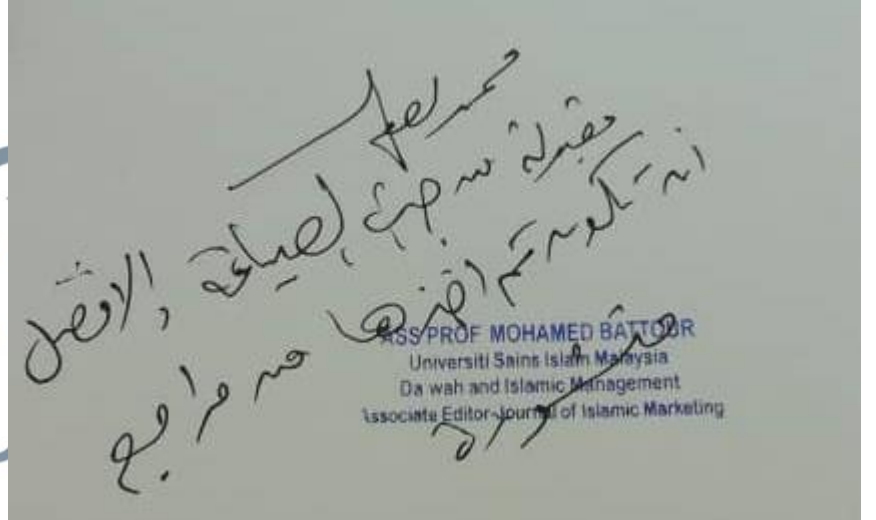 مقبولة من جهة الصياغة والافضل
ان تكون تم اخذها من مراجع
منشورة
ASS PROF MOHAMED BATTOUR
Universiti Sains Islam Malaysia
Da wah and Islamic Management
Associate Editor-Journal of Islamic Marketing